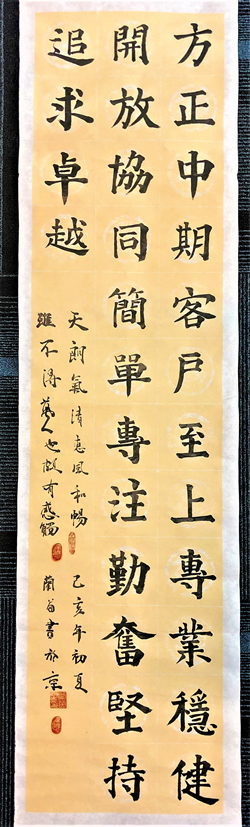 方正中期客戶至上專業穩健
開放協同簡單專注勤奮堅持
追求卓越
天朗氣清惠風和暢 乙亥年初夏
雖不得藝人也頗有感觸 蘭谷書於京